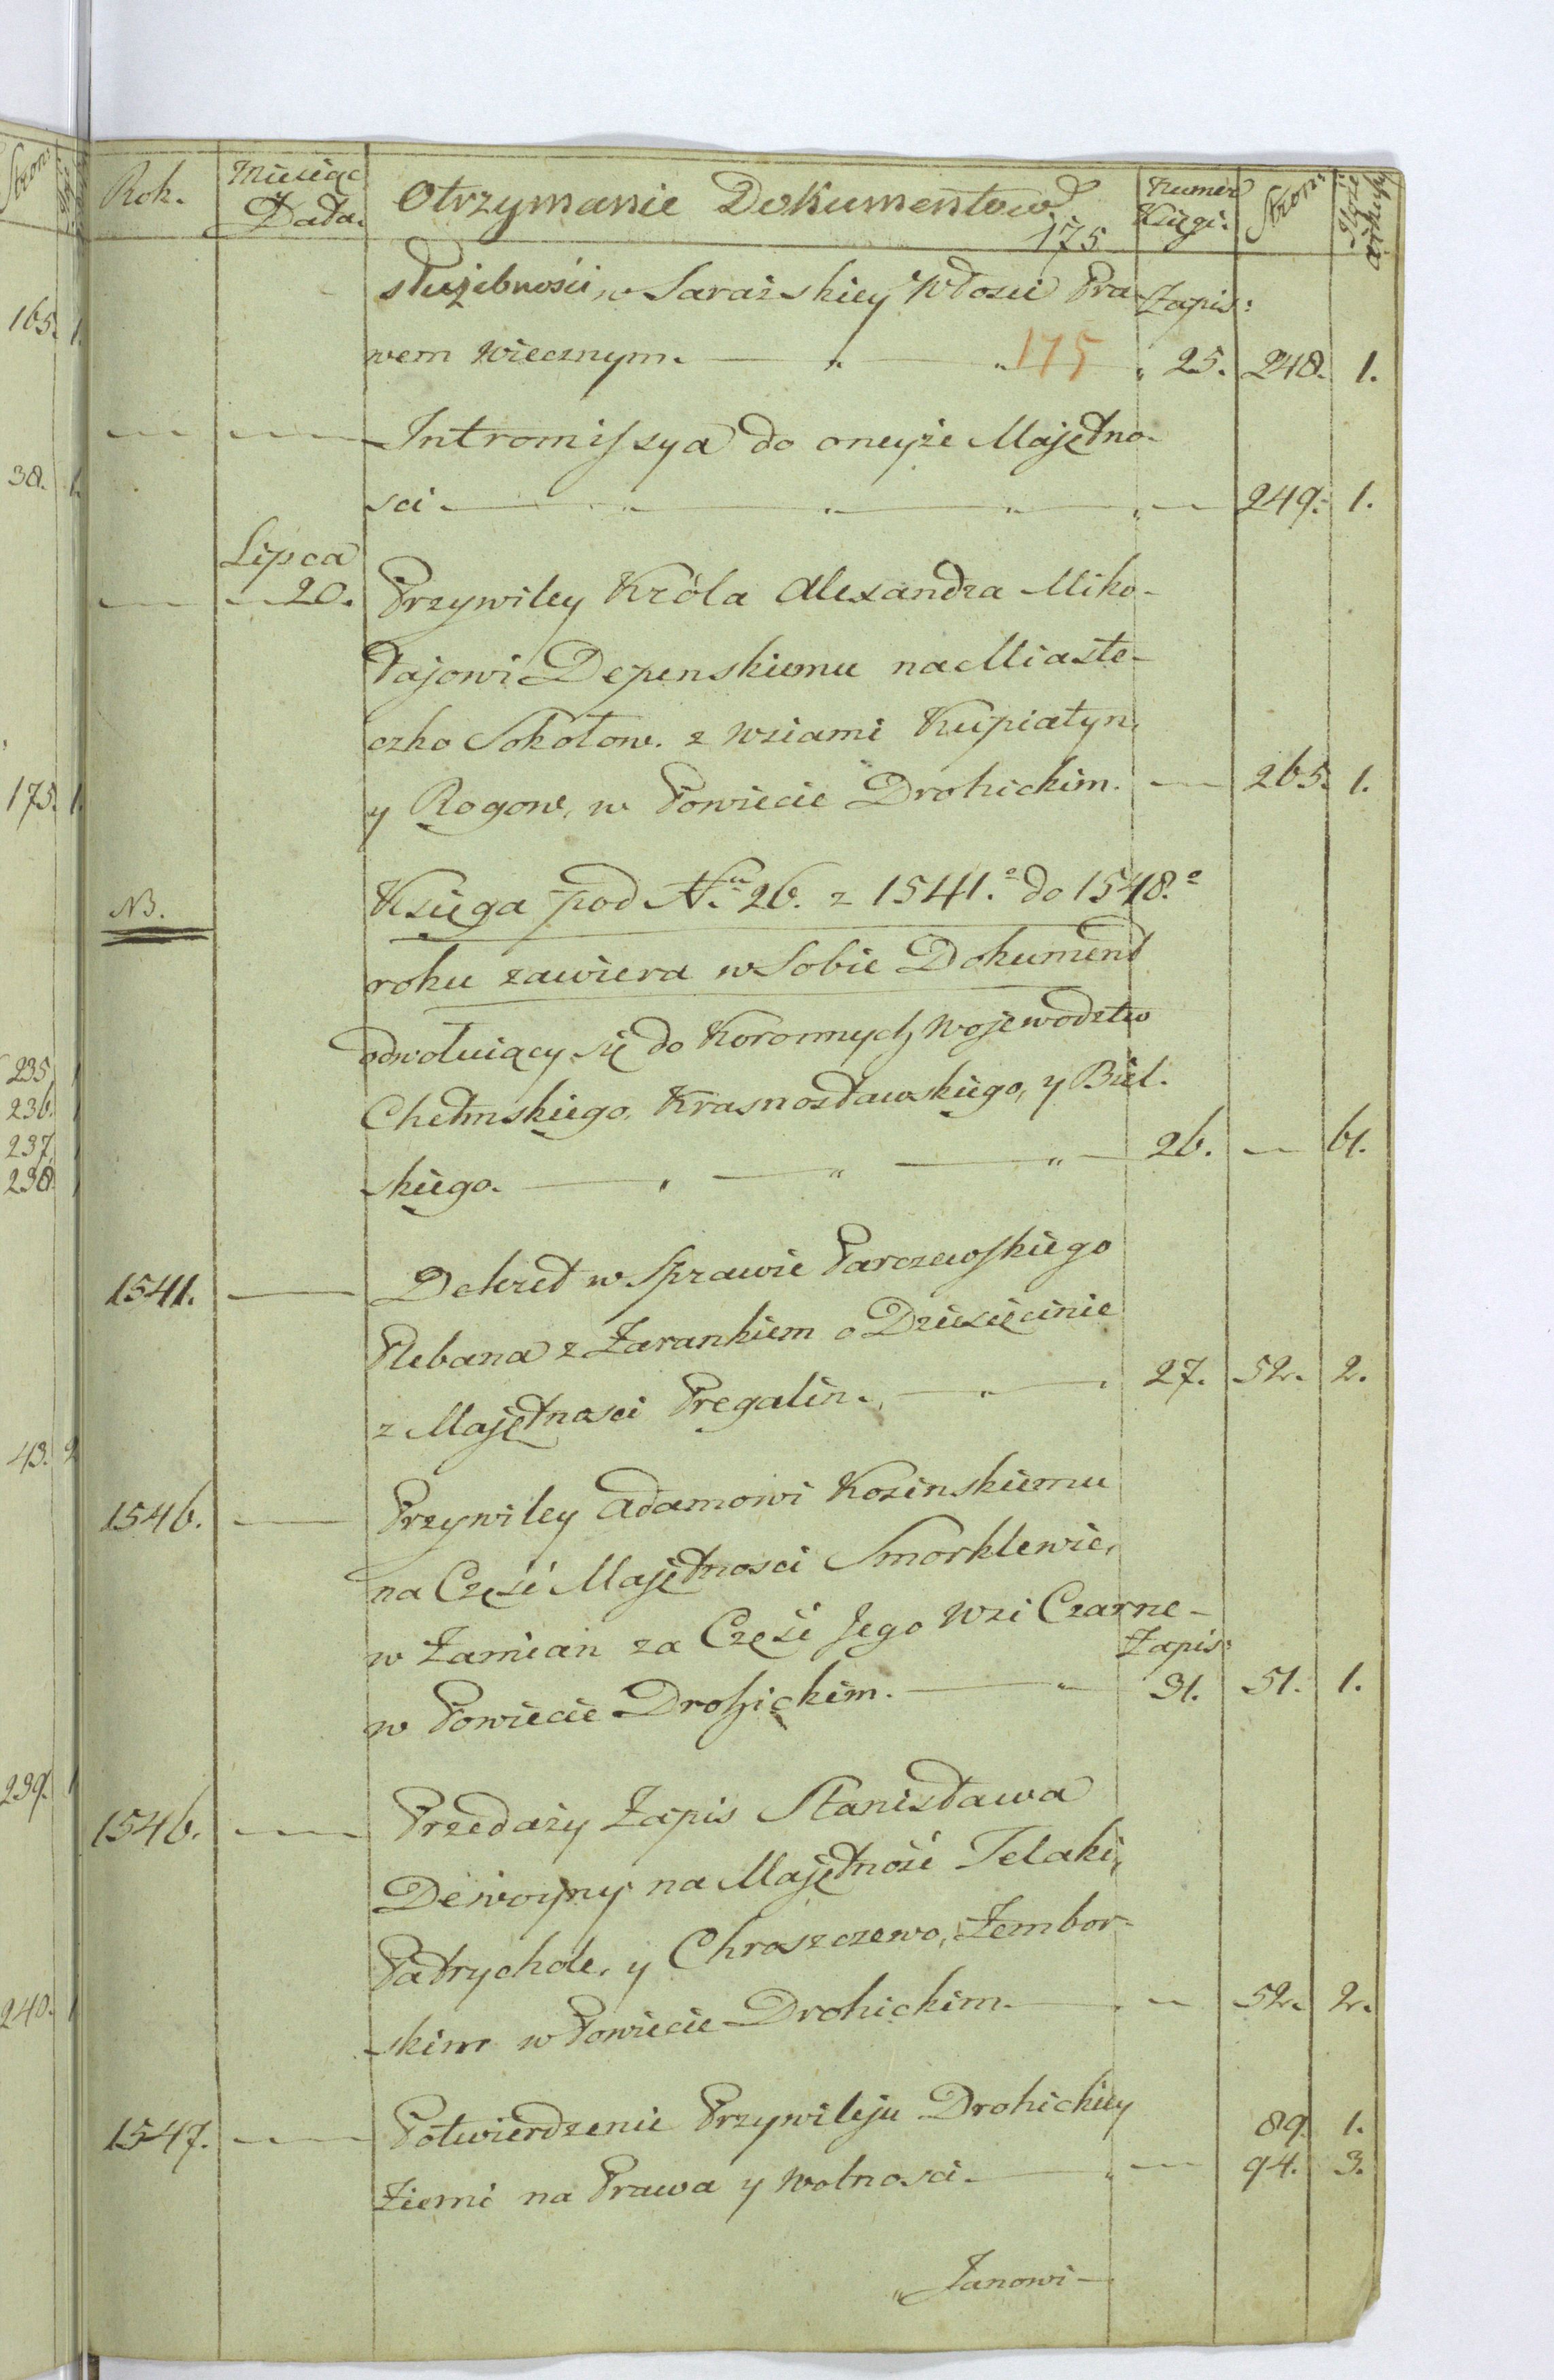 Rok. Miesiąc Data. Otrzymanie Dokumentow Numer Xięgi. Stron:
175
służebności, w Saražskiey Włosci Pra- Zapis:
wem wiecznym. 175 25. 248. 1.
Intromissya do oneyże Majętno-
sci. 249. 1.
Lipca
20. Przywiley Króla Alexandra Miko-
łajowi Depenskiemu na Miaste-
czko Sokołow. z Wsiami Kupiatyn,
y Rogow, w Powiecie Drohickim. 265. 1.
NB. Księga pod Nu 26. z 1541.o do 1548.o
roku zawiera w Sobie Dokument
odwołuiący się do Koronnych Wojewodztw
Chełmskiego, Krasnostawskiego, y Biel-
skiego. 26. 61.
1541. Dekret w Sprawie Parczewskiego
Plebana z Zarankiem o Dziesięcinie
z Majętnosci Pregalin. 27. 52. 2.
1546. Przywiley Adamowi Kosinskiemu
na Część Majętnosci Smorklewic,
w Zamian za Część Jego Wsi Czarne-
Zapis:
w Powiecie Drohickim. 31. 51. 1.
1546. Przedaży Zapis Stanisława
Dewoyny na Majętność Telaki,
Patrychole, y Chroszczewo, Zembor-
skim w Powiecie Drohickim. 52. 2.
1547. Potwierdzenie Przywileju Drohickiey 89. 1.
Ziemi na Prawa y Wolnosci. 94. 3.
Janowi-
165. 1.
38. 1.
175. 1.
235
236.
237
238
43. 2
239.
240.